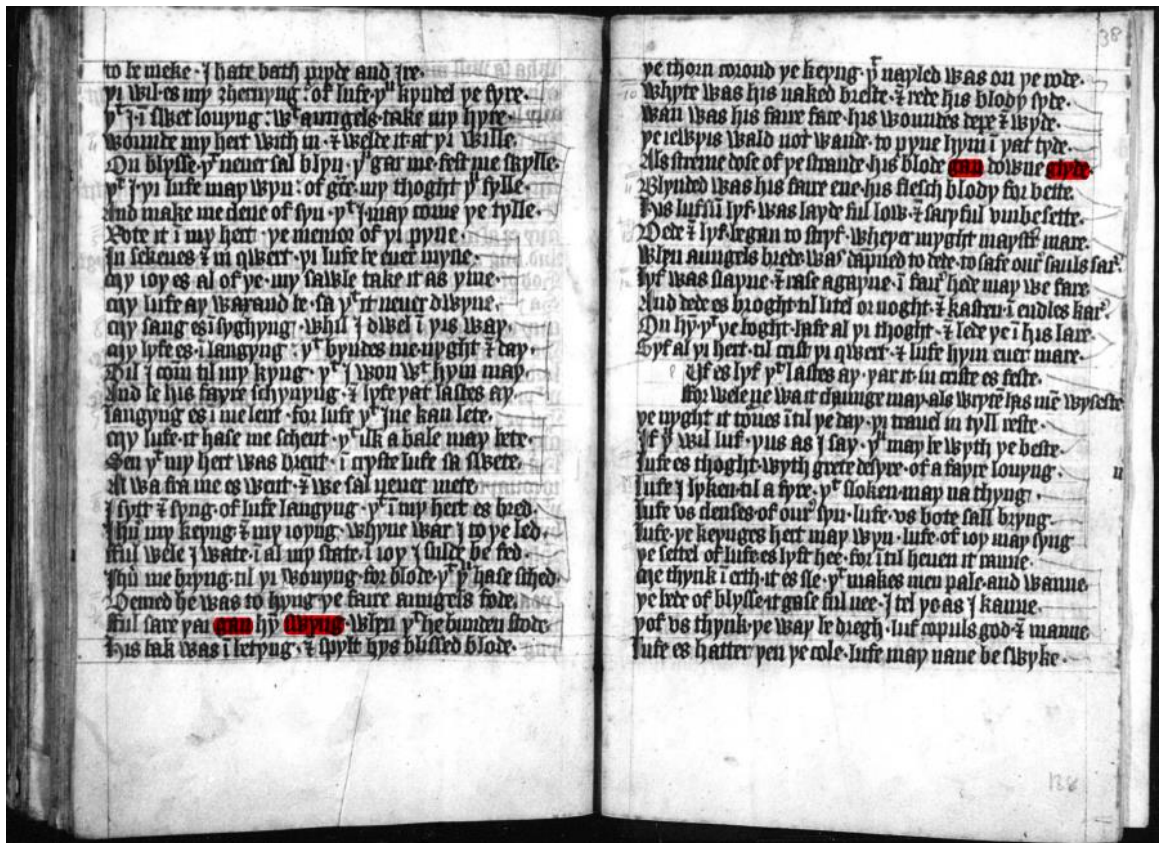 to be meke · I hate bath pryde and Ire ·
yi wil es my ȝhernyng : of lufe yᵘ kyndel ye fyre ·
yᵗ I ī swet louyng : wᵗ aungels take my hyre ·
wounde my hert with in · ⁊ welde it at yi wille ·
On blysse yᵗ neuer sal blyn · yᵘ gar me fest me skylle ·
yᵗ I yi lufe may wyn : of gᵃce my thoght yᵘ fylle ·
And make me clene of syn · yᵗ I may come ye tylle ·
Rote it ī my hert · ye memor of yi pyne ·
In sekenes ⁊ in qwert · yi lufe be euer myne ·
My ioy es al of ye · my sawle take it as yine ·
My lufe ay waxand be · sa yᵗ it neuer dwyne ·
My sang es ī syghyng · whil I dwel ī yis way ·
My lyfe es ī langyng : yᵗ byndes me nyght ⁊ day ·
Til I com til my kyng · yᵗ I won wᵗ hym may ·
And se his fayre schynyng · ⁊ lyfe yat lastes ay ·
langyng es ī me lent · for lufe yᵗ I ne kan lete ·
My lufe it hase me schent · yᵗ ilk a bale may bete ·
Sen yᵗ my hert was brent · ī cryste lufe sa swete ·
Al wa fra me es went · ⁊ we sal neuer mete ·
I sytt ⁊ syng · of lufe langyng · yᵗ ī my hert es bred ·
Ihū my keyng ⁊ my ioyng · whyne war I to ye led ·
fful wele I wate · ī al my state · ī ioy I sulde be fed ·
Ihū me bryng · til yi wonyng · for blode yᵗ yᵘ hase sched ·
Demed he was to hyng · ye faire aungels fode ·
fful sare yai gan hȳ swyng · when yᵗ he bunden stode ·
His bak was ī betyng · ⁊ spylt hys blissed blode ·
38
ye thorn corond ye keyng · yᵗ nayled was on ye rode ·
Whyte was his naked breste · ⁊ rede his blody syde ·
Wan was his faire face · his woundes depe ⁊ wyde ·
ye iewyis wald not wande · to pyne hym ī yat tyde ·
Als streme dose of ye strande · his blode gan downe glyde ·
Blynded was his faire ene · his flesch blody for bette ·
His lufsū lyf was layde ful low · ⁊ saryful vmbesette ·
Dede ⁊ lyf began to stryf · wheyer myght maystᵉ mare ·
When aungels brede was dāpned to dede · to safe oure sauls sare
lyf was slayne · ⁊ rase agayne · ī faire hede may we fare
And dede es broght til litel or noght · ⁊ kasten ī endles kare
On hȳ yᵗ ye boght · hafe al yi thoght · ⁊ lede ye ī his lare ·
Gyf al yi hert · til crist yi qwert · ⁊ lufe hym euer mare ·
luf es lyf yᵗ lastes ay · yar it in criste es feste ·
ffor wele ne wa it chaunge may · als wryten has mē wyseste
ye nyght it tornes ītil ye day · yi trauel in tyll reste ·
If yᵘ wil luf · yus as I say · yᵘ may be wyth ye beste ·
lufe es thoght · wyth grete desyre · of a fayre louyng ·
lufe I lyken til a fyre · yᵗ sloken may na thyng ·
lufe vs clenses of oure syn · lufe vs bote sall bryng ·
lufe ye keynges hert may wyn · lufe of ioy may syng
ye settel of lufe es lyft hee · for ītil heuen it ranne ·
Me thynk ī erth it es sle · yᵗ makes men pale and wanne
ye bede of blysse it gase ful nee · I tel yo as I kanne
yof vs thynk ye way be dregh · luf copuls god ⁊ manne
lufe es hatter yen ye cole · lufe may nane be swyke ·
138